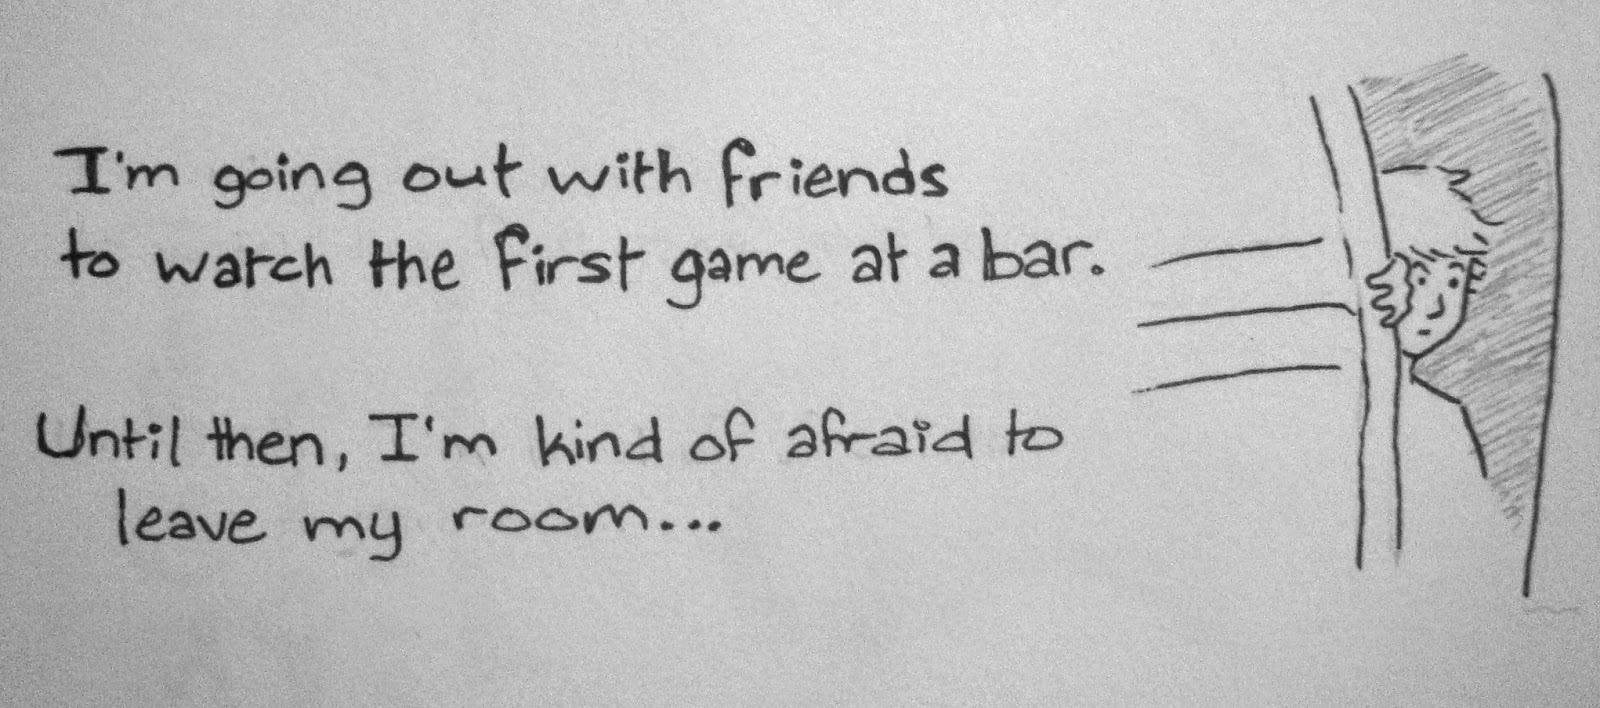 I'm going out with friends
to watch the first game at a bar.
Until then, I'm kind of afraid to
leave my room...